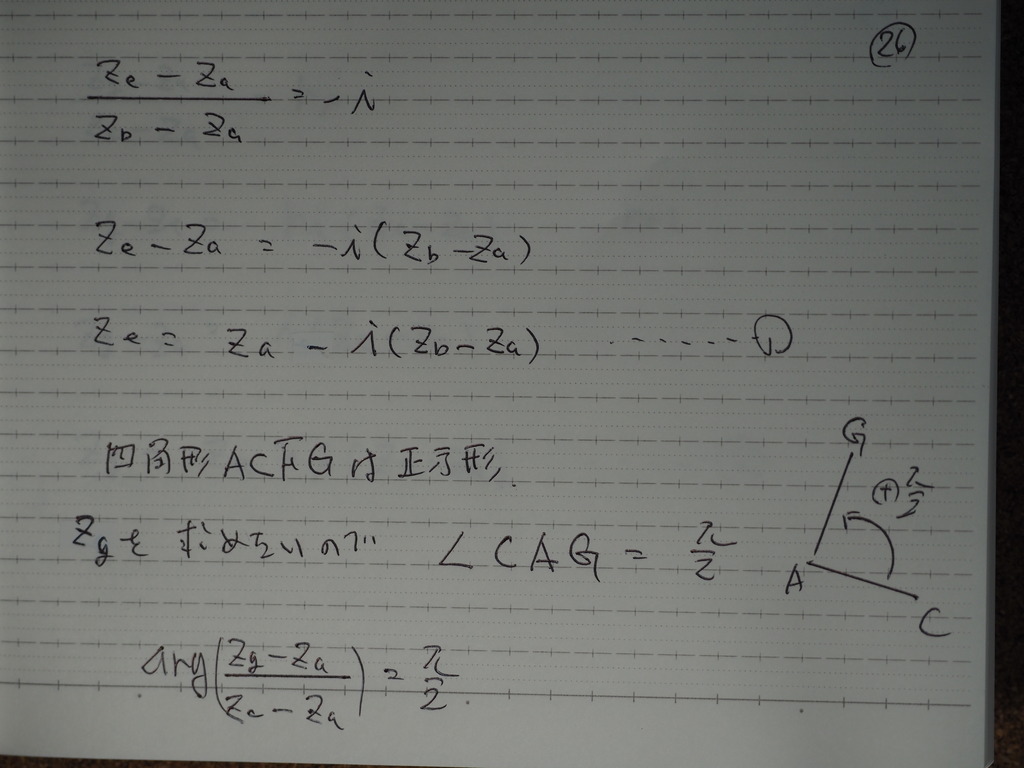 26
(Ze - Za) / (Zb - Za) = -i
Ze - Za = -i(Zb - Za)
Ze = Za - i(Zb - Za) ······ ①
四角形 ACFG は 正方形.
Zgを 求めたいので ∠CAG = π/2
G
⊕ π/2
A
C
arg((Zg - Za) / (Zc - Za)) = π/2